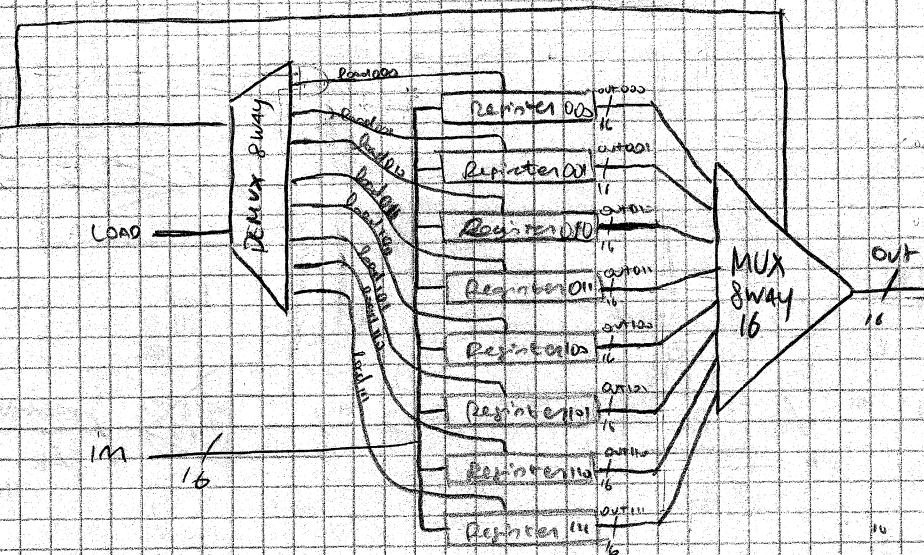 LOAD
in
16
DEMUX 8WAY
load000
load001
load010
load011
load100
load101
load110
load111
Register 000
Register 001
Register 010
Register 011
Register 100
Register 101
Register 110
Register 111
OUT000
16
OUT001
16
OUT010
16
OUT011
16
OUT100
16
OUT101
16
OUT110
16
OUT111
16
MUX
8WAY
16
OUT
16